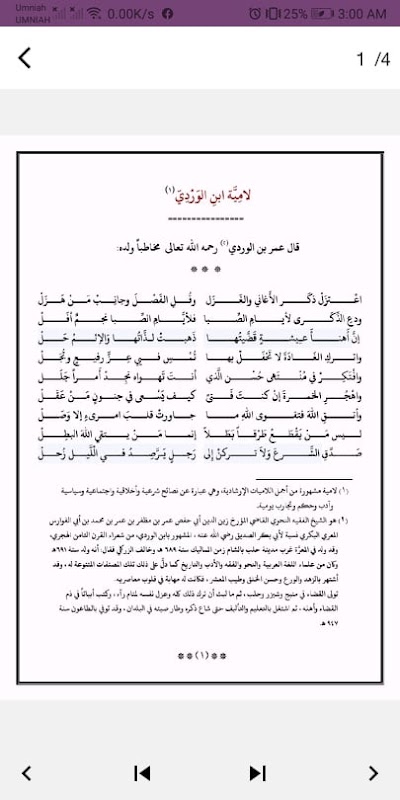 Umniah
UMNIAH
0.00K/s
25%
3:00 AM
1 /4
لامِيَّة ابنِ الوَرْدِيّ (١)
================
قال عمر بن الوردي(٢) رحمه الله تعالى مخاطباً ولده:
* * *
اعْتَزِلْ ذكْرَ الأغاني والغَزَلْ وقُلِ الفَصْلَ وجانِبْ مَنْ هَزَلْ
ودعِ الذِّكْرَى لأيامِ الصِّبا فلأيَّامِ الصِّبا نَجمٌ أفَلْ
إنَّ أهنأَ عيشةٍ قضَيْتُها ذهبتْ لذَّاتُها والإثْمُ حَلْ
واتركِ الغادَةَ لا تَحْفَلْ بها تُمْسِ في عِزٍّ رفيعٍ وتُجَلْ
وافْتَكِرْ في مُنْتهى حُسْنِ الَّذي أنتَ تَهواه تجدْ أمراً جَلَلْ
واهْجُرِ الخمرةَ إنْ كنتَ فَتىً كيف يَسْعى في جنونٍ مَنْ عَقَلْ
واتقِ اللهَ فتقوى اللهِ ما جاورتْ قلبَ امرىءٍ إلا وَصَلْ
ليس مَنْ يَقْطَعُ طُرْقاً بَطَلاً إنما مَنْ يتقي اللهَ البطلْ
صَدِّقِ الشَّرعَ ولا تركنْ إلى رجلٍ يَرْصُدُ في اللَّيلِ زُحَلْ
(١) لامية مشهورة من أجمل اللاميات الإرشادية، وهي عبارة عن نصائح شرعية وأخلاقية واجتماعية وسياسية
وأدب وحكم وتجارب يومية.
(٢) هو الشيخ الفقيه النحوي القاضي المؤرخ زين الدين أبي حفص عمر بن مظفر بن عمر بن محمد بن أبي الفوارس
المعري البكري نسبة لأبي بكر الصديق رضي الله عنه، المشهور بابن الوردي، من شعراء القرن الثامن الهجري،
وقد ولد في المعرّة غرب مدينة حلب بالشام زمن المماليك سنة ٦٨٩ هـ وخالف الزركلي فقال: أنه ولد سنة ٦٩١هـ
وكان من علماء اللغة العربية والنحو والفقه والأدب والتاريخ كما دلَّ على ذلك تلك المصنفات المتنوعة له، وقد
اشتهر بالزهد والورع وحسن الخلق وطيب المعشر، فكانت له مهابة في قلوب معاصريه.
تولى القضاء في منبج وشيزر وحلب، ثم ما لبث أن ترك ذلك كله وعزل نفسه لمنام رآه، وكتب أبياتاً في ذم
القضاء وأهله، ثم اشتغل بالتعليم والتأليف حتى شاع ذكره وطار صيته في البلدان، وقد توفي بالطاعون سنة
٩٤٧ هـ
**(١)**